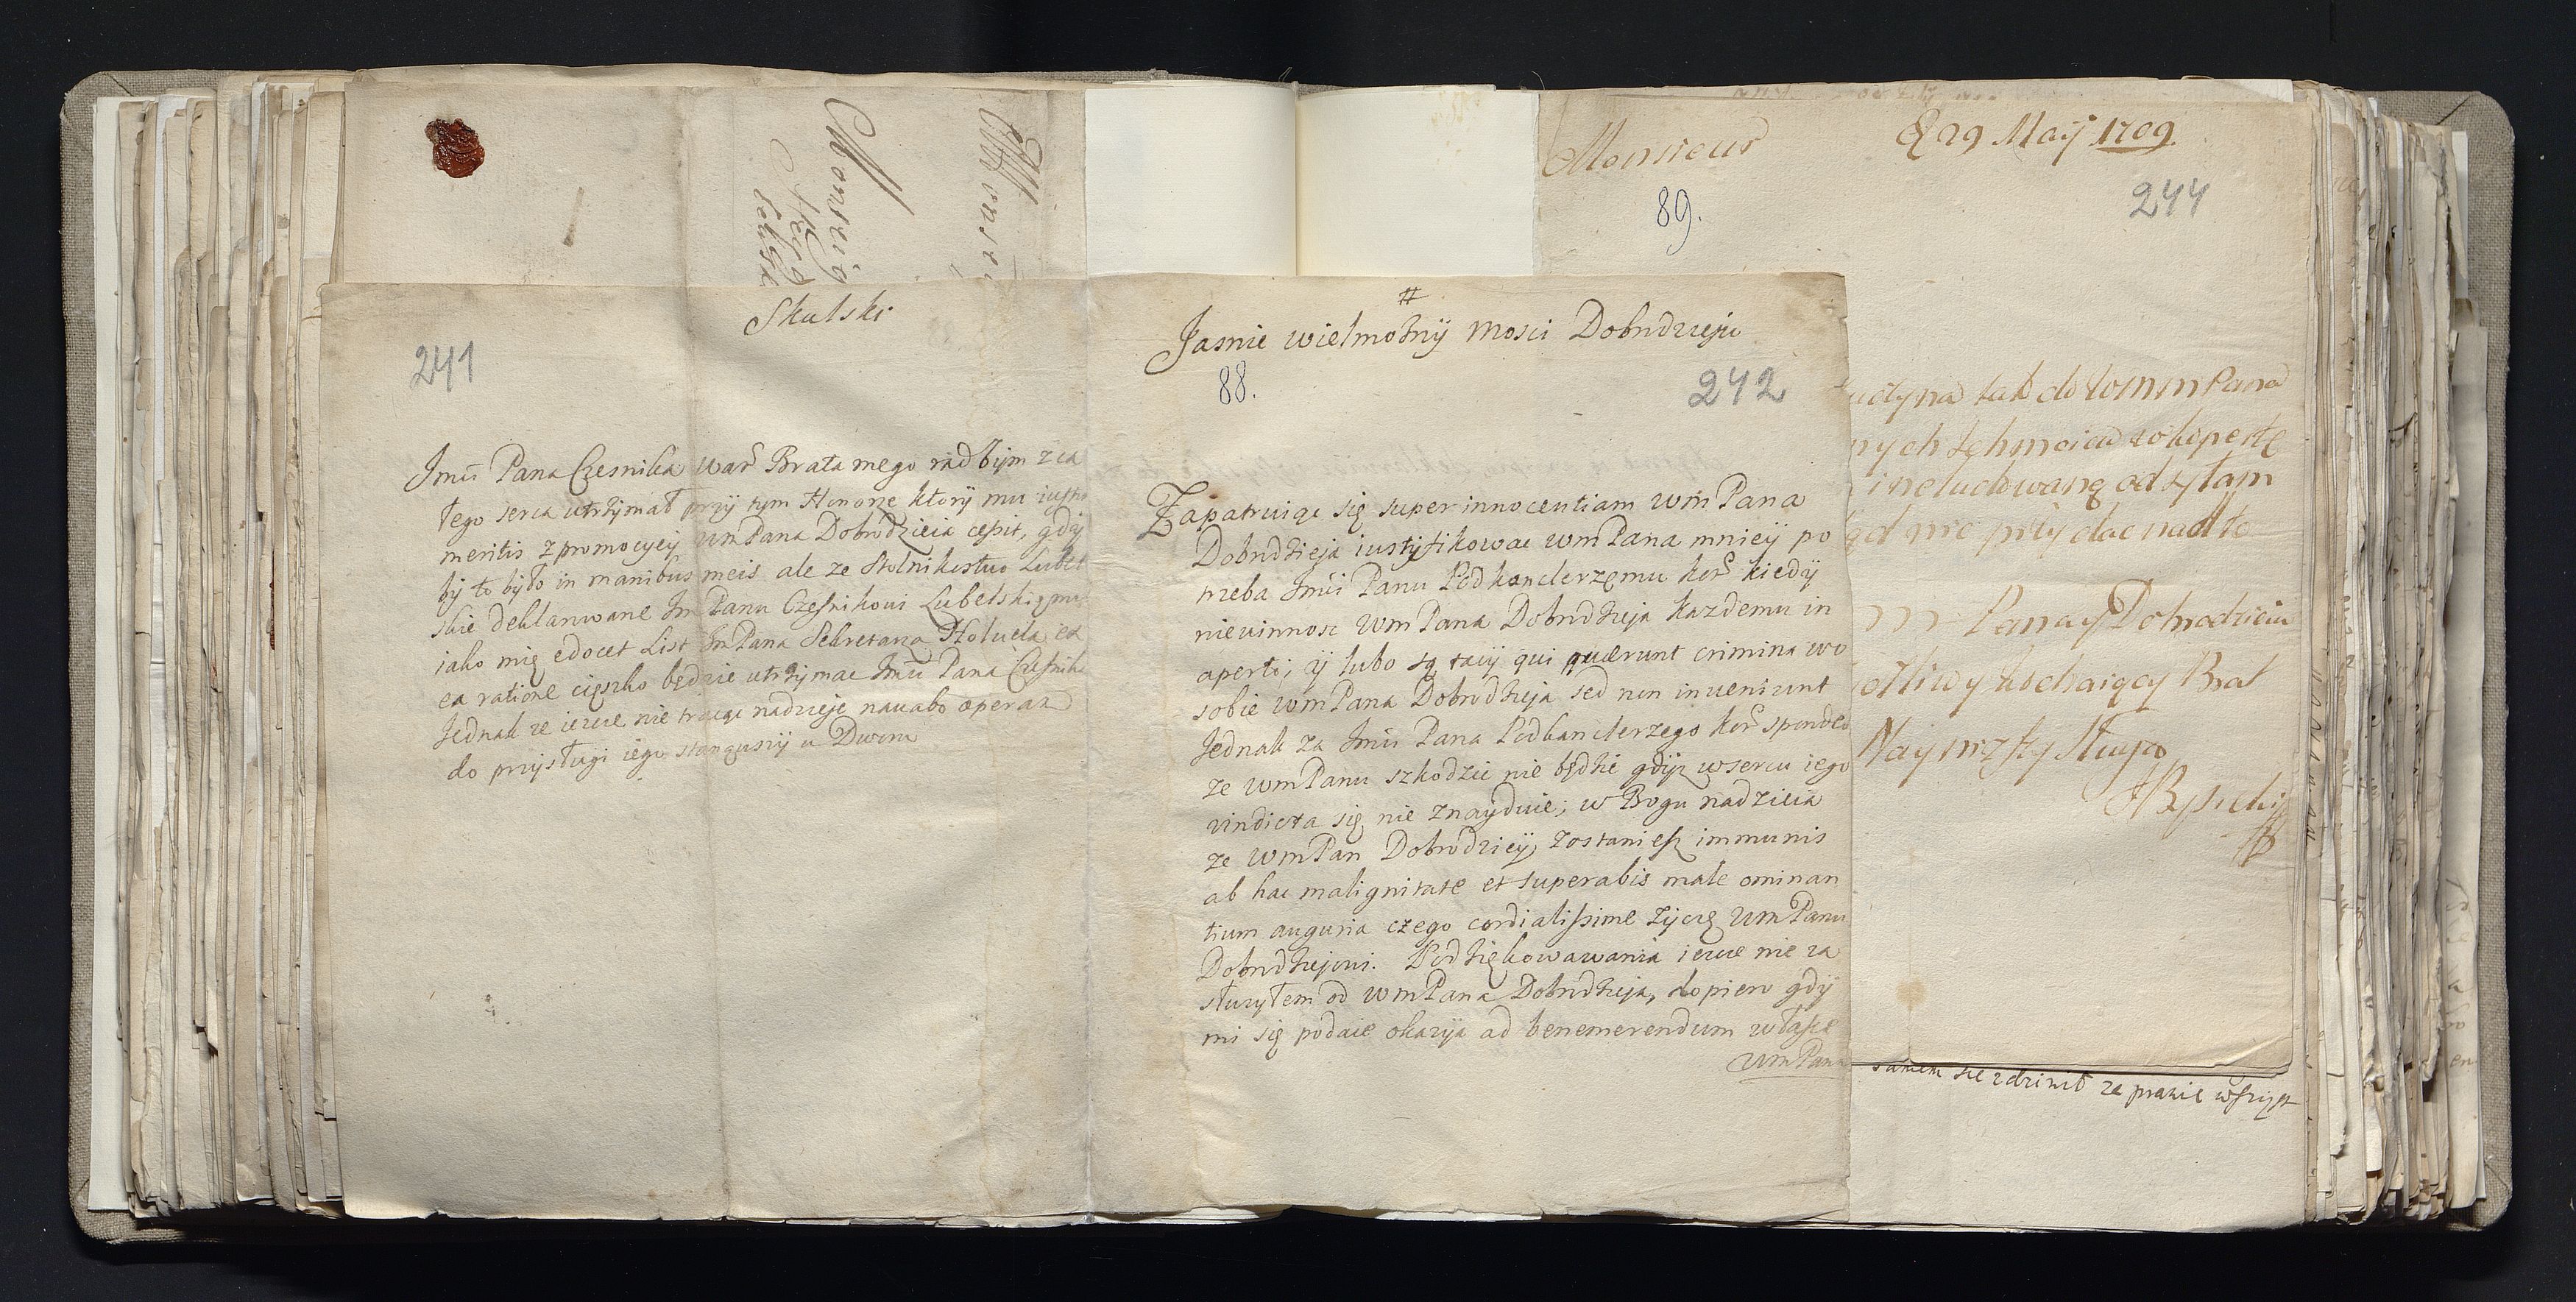 Skulski
241
Jmći Pana Czesnika war Brata mego radbym z ca
łego serca utrzymał przy tym Honorze ktory mu iusto
meritis z promocyey wm Pana Dobrodzieia cessit, gdy
by to było in manibus meis ale ze Stolnikostwo Lubel
skie deklarowane Jm Panu Czesnikowi Lubelskiemu
iako mię edocet List Jm Pana Sekretarza ex
ea ratione ciężko będzie utrzymac Jmći Pana Czesnika
Jednak ze ieszcze nie tracąc nadzieje operam
do przysługi iego u Dworu
Jasnie wielmożny Mosci Dobrodzieju
88.
242
Zapatruiąc się super innocentiam wm Pana
Dobrodzieja iustyfikowac wm Pana mniey po
trzeba Jmći Panu Podkanclerzemu kor kiedy
niewinnosc wm Pana Dobrodzieja kazdemu in
aperto; y lubo są tacy qui quærunt crimina w
sobie wm Pana Dobrodzieja sed non inveniunt
Jednak za Jmći Pana Podkanclerzego kor spondeo
ze wm Panu szkodzic nie będzie gdyz w sercu iego
vindicta się nie znayduie; w Bogu nadzieia
ze wm Pan Dobrodziey zostaniesz immunis
ab hac malignitate et superabis male ominan
tium auguria czego cordialissime zyczę wm Panu
Dobrodziejowi. Podziękowawania ieszcze nie za
służyłem od wm Pana Dobrodzieja, dopiero gdy
mi się podaie okazya ad benemerendum w łasce
wm Pana
Monsieur
29 Maij 1709
89.
244
tak do wmm Pana
ineludowaną odsyłam
przydac nad to
Pana y Dobrodzieia
kochaiący Brat
Nayniższy Sługa
samem sie zdziwił ze prawie